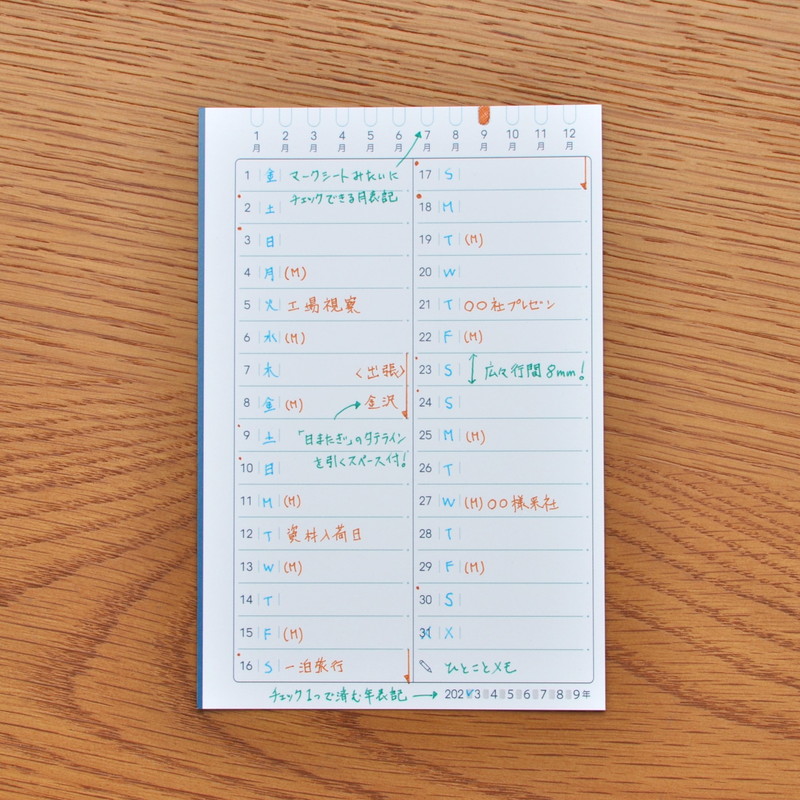 1 2 3 4 5 6 7 8 9 10 11 12
月 月 月 月 月 月 月 月 月 月 月 月
1 金 マークシートみたいに
チェックできる月表記
2 土
3 日
4 月 (M)
5 火 工場視察
6 水 (M)
7 木 〈出張〉
8 金 (M) 金沢
9 土 「日またぎ」のタテライン
を引くスペース付!
10 日
11 M (M)
12 T 資材入荷日
13 W (M)
14 T
15 F (M)
16 S 一泊旅行
17 S
18 M
19 T (M)
20 W
21 T 〇〇社プレゼン
22 F (M)
23 S 広々行間8mm!
24 S
25 M (M)
26 T
27 W (M) 〇〇様来社
28 T
29 F (M)
30 S
31 X
ひとことメモ
チェック1つで済む年表記 → 202 3 4 5 6 7 8 9年